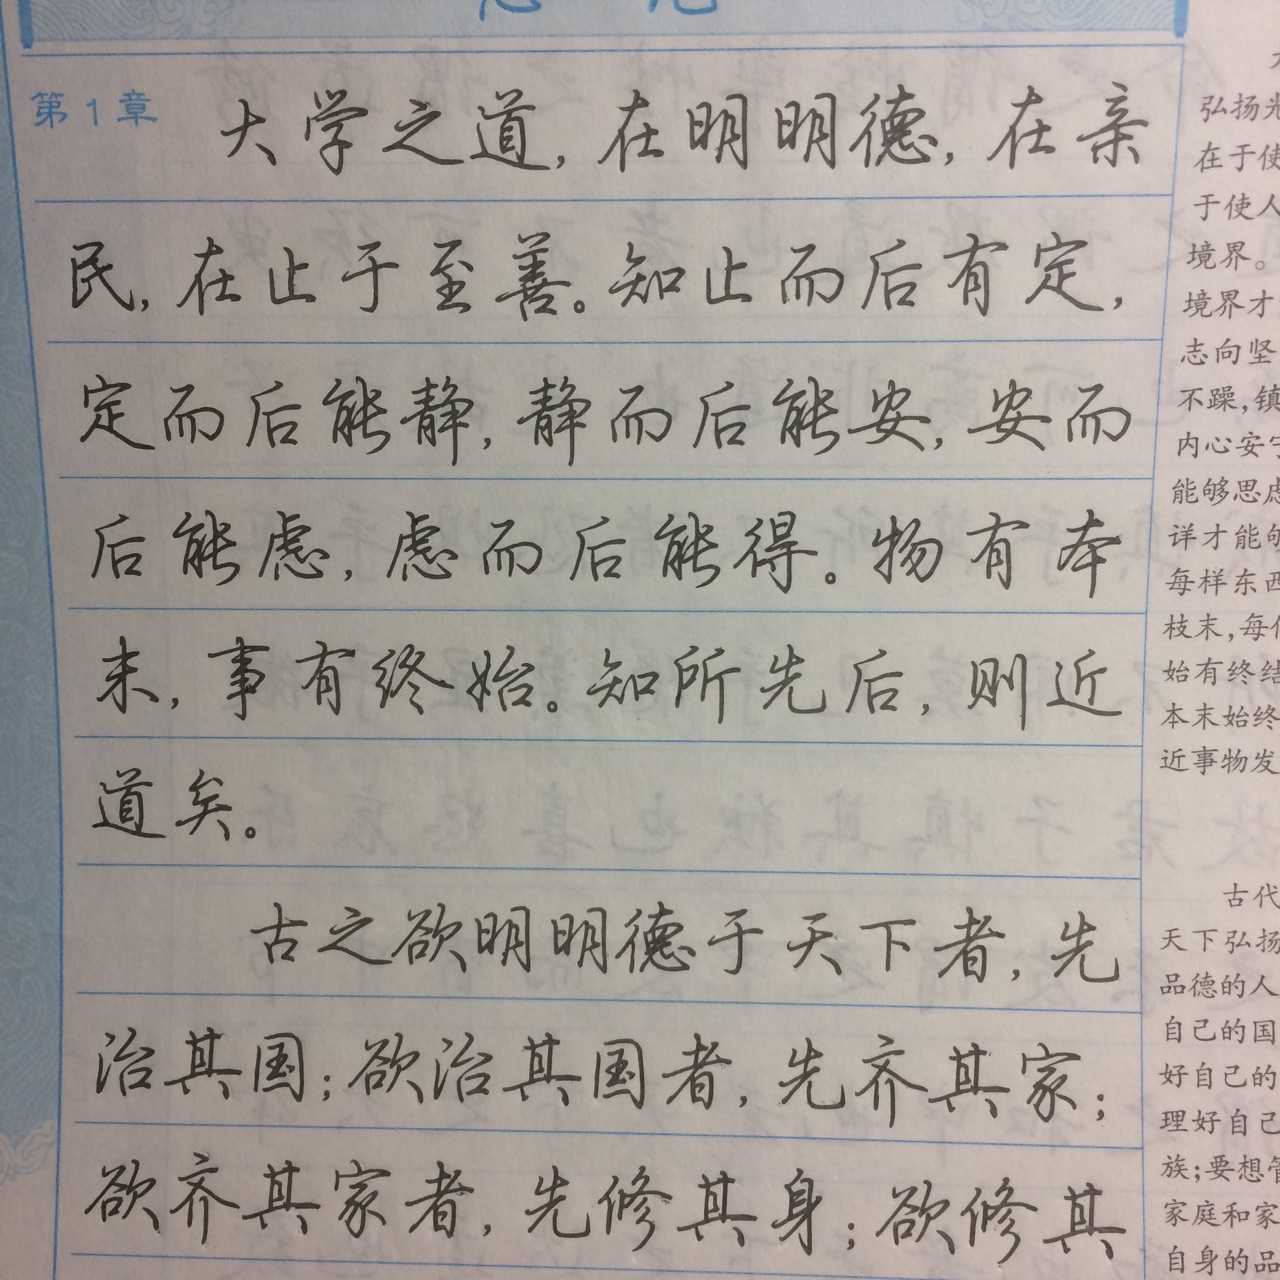 第1章
大学之道,在明明德,在亲
民,在止于至善。知止而后有定,
定而后能静,静而后能安,安而
后能虑,虑而后能得。物有本
末,事有终始。知所先后,则近
道矣。
古之欲明明德于天下者,先
治其国;欲治其国者,先齐其家;
欲齐其家者,先修其身;欲修其
弘扬光
在于使
于使人
境界。
境界才
志向坚
不躁,镇
内心安宁
能够思虑
详才能够
每样东西
枝末,每
始有终结
本末始终
近事物发
古代
天下弘扬
品德的人
自己的国
好自己的
理好自己
族;要想管
家庭和家
自身的品